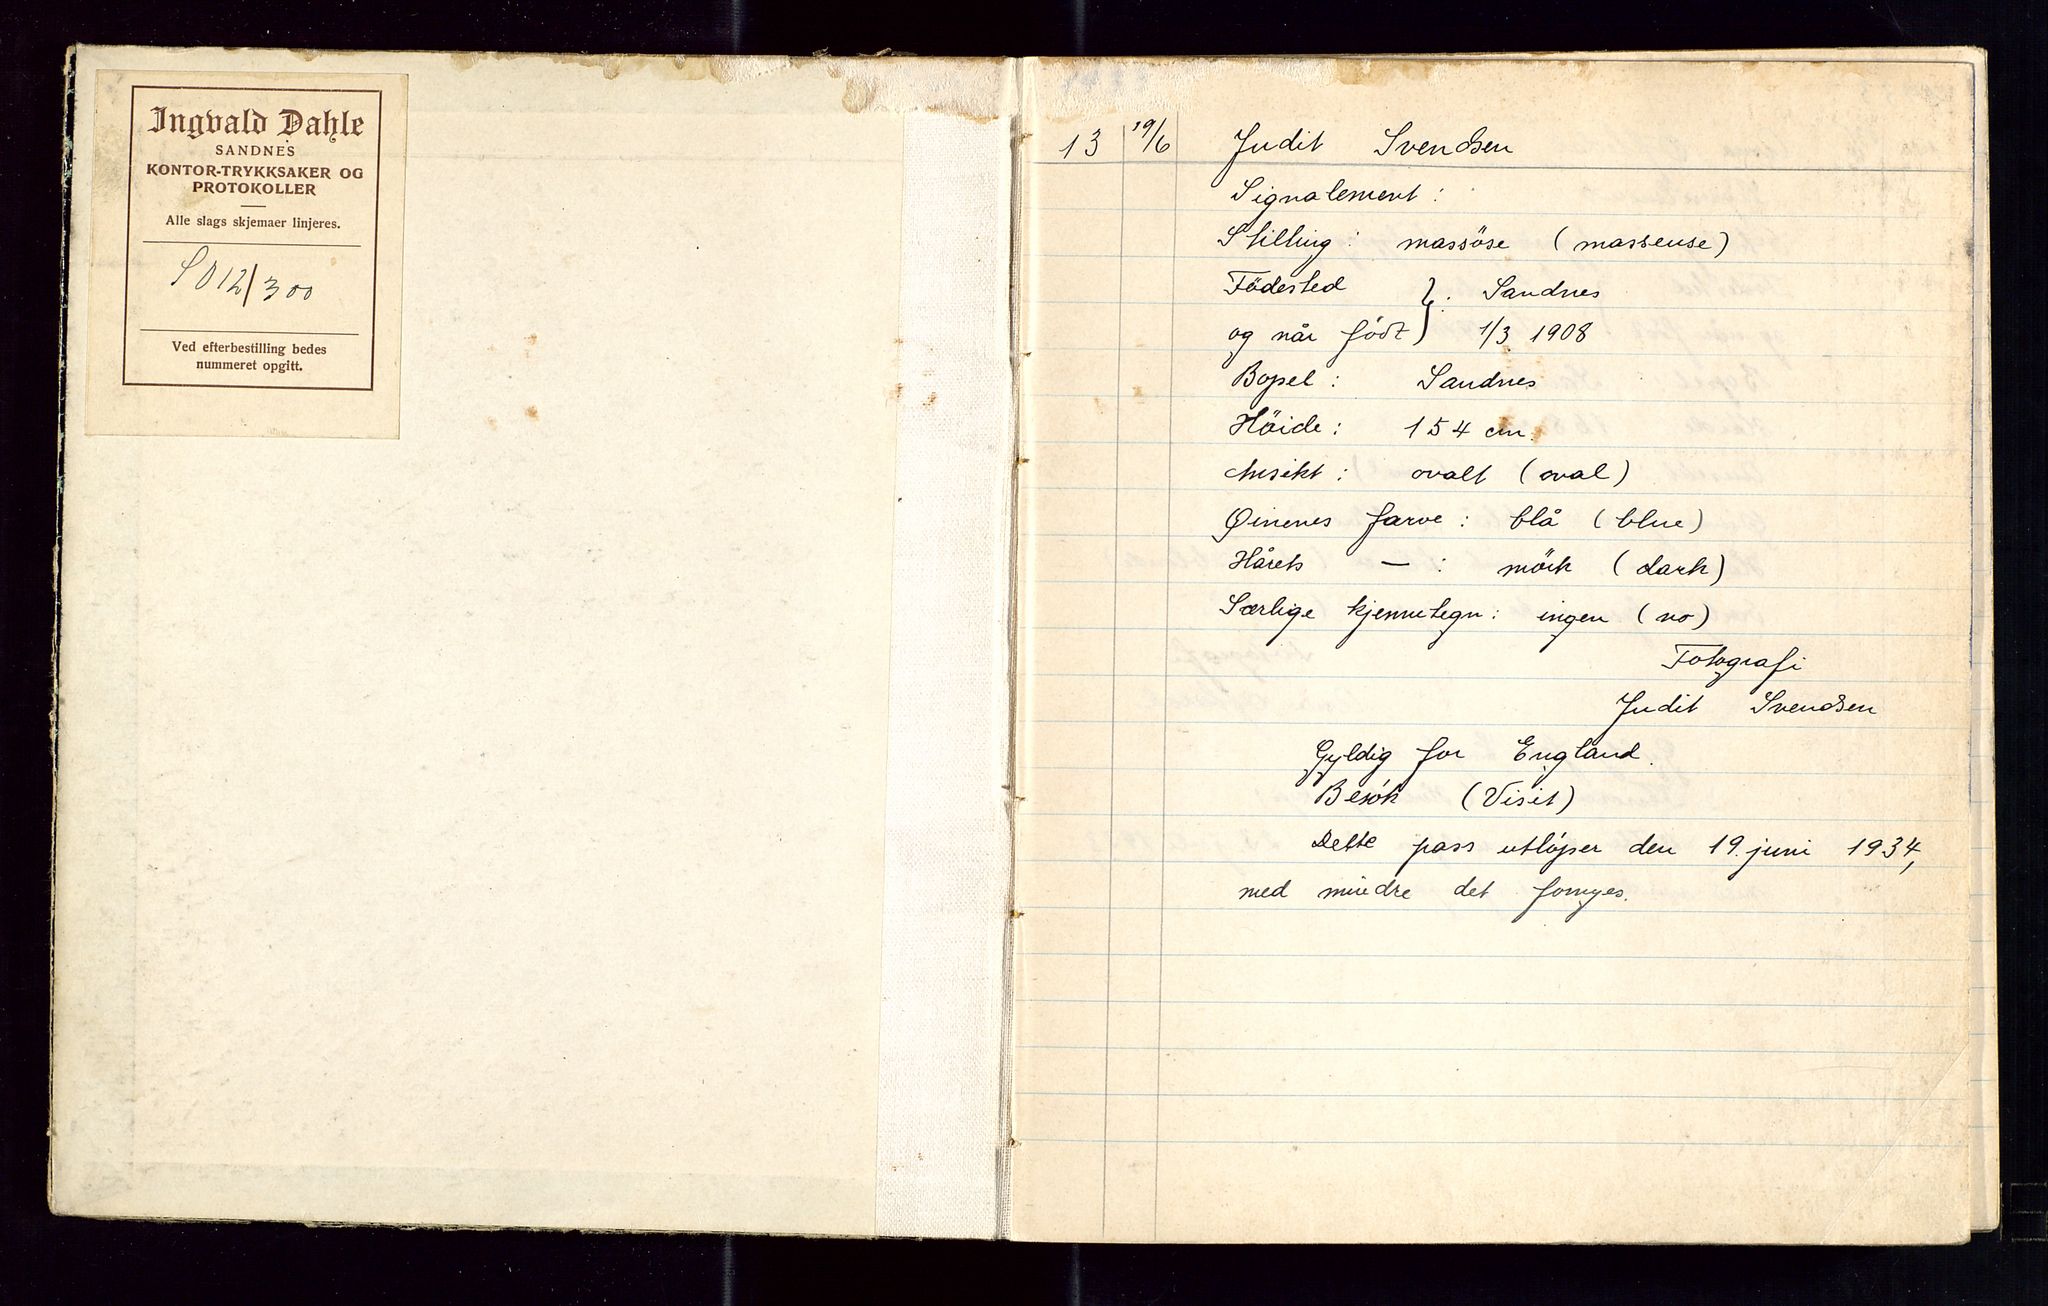 Ingvald Dahle
SANDNES
KONTOR-TRYKKSAKER OG
PROTOKOLLER
Alle slags skjemaer linjeres.
S 012/300
Ved efterbestilling bedes
nummeret opgitt.
13 19/6 Judit Svendsen
Signalement:
Stilling: massöse (masseuse)
Födested }: Sandnes
og når födt } 1/3 1908
Bopel: Sandnes
Höide: 154 cm.
Ansikt: ovalt (oval)
Øinenes farve: blå (blue)
Hårets —: mörk (dark)
Særlige kjennetegn: ingen (no)
Fotografi
Judit Svendsen
Gyldig for England.
Besök (Visit)
Dette pass utlöper den 19. juni 1934,
med mindre det fornyes.